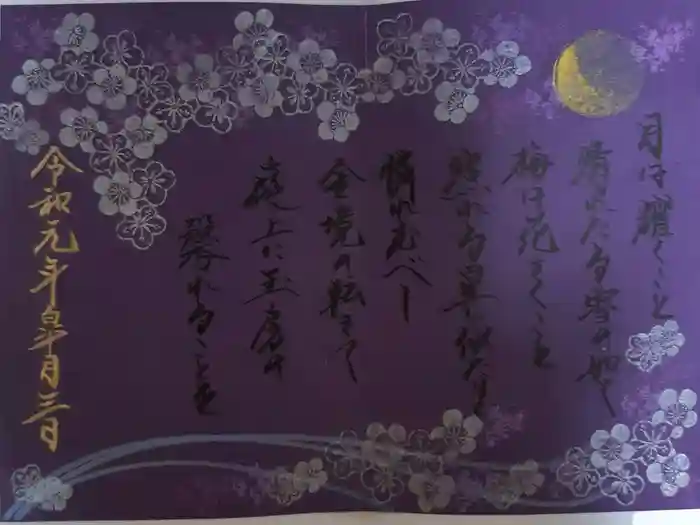 月は耀くこと
晴れたる雪の如く
梅は花さくことも
照れる星に似たり
憐れむべし
金鏡の転きて
庭上に玉房の
馨れることを
令和元年皐月三日